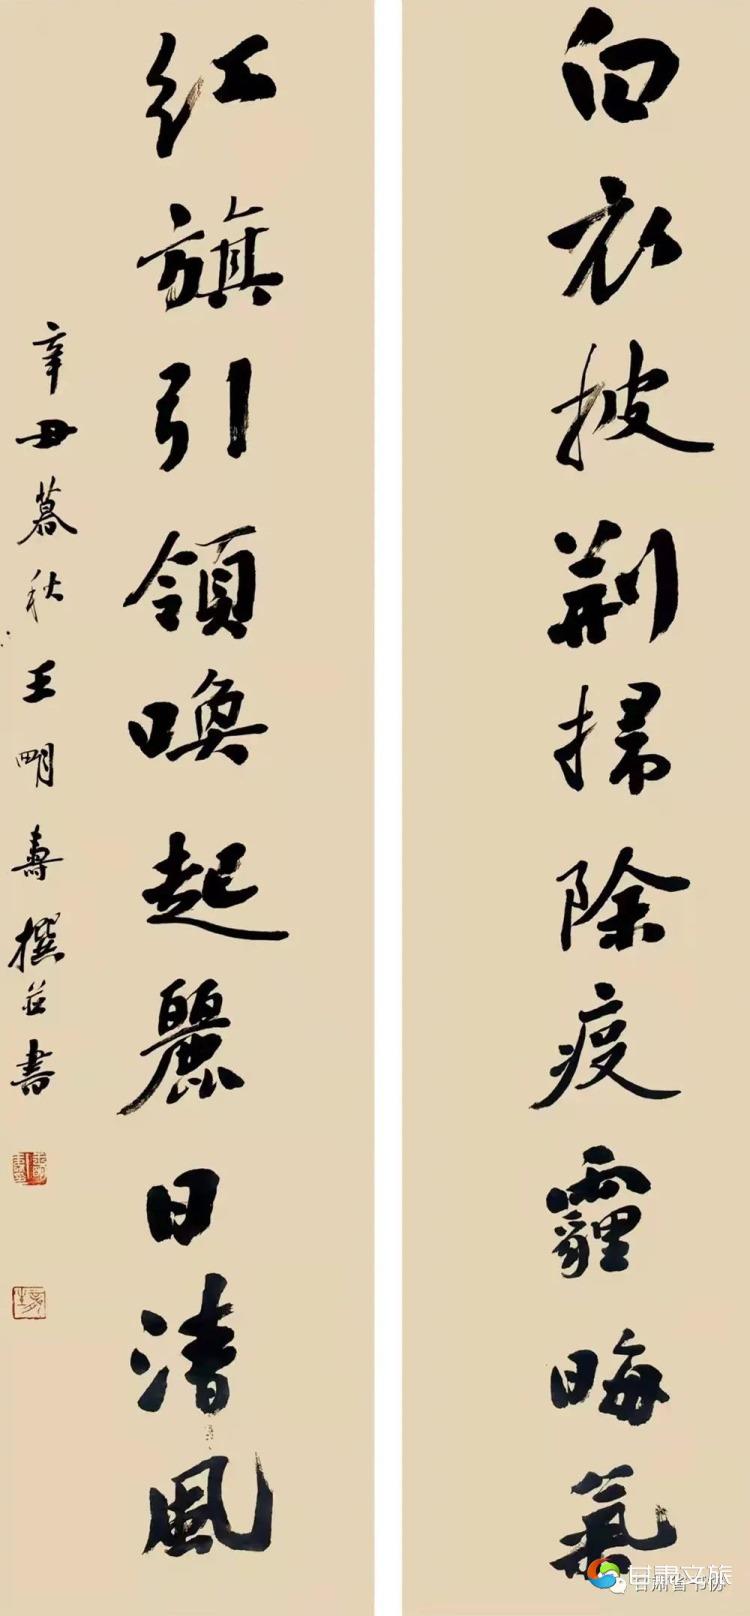 白衣披荆掃除疫霾晦氣
红旗引領喚起麗日清風
辛丑暮秋王明壽撰并書
甘肃文旅
甘肃省书协